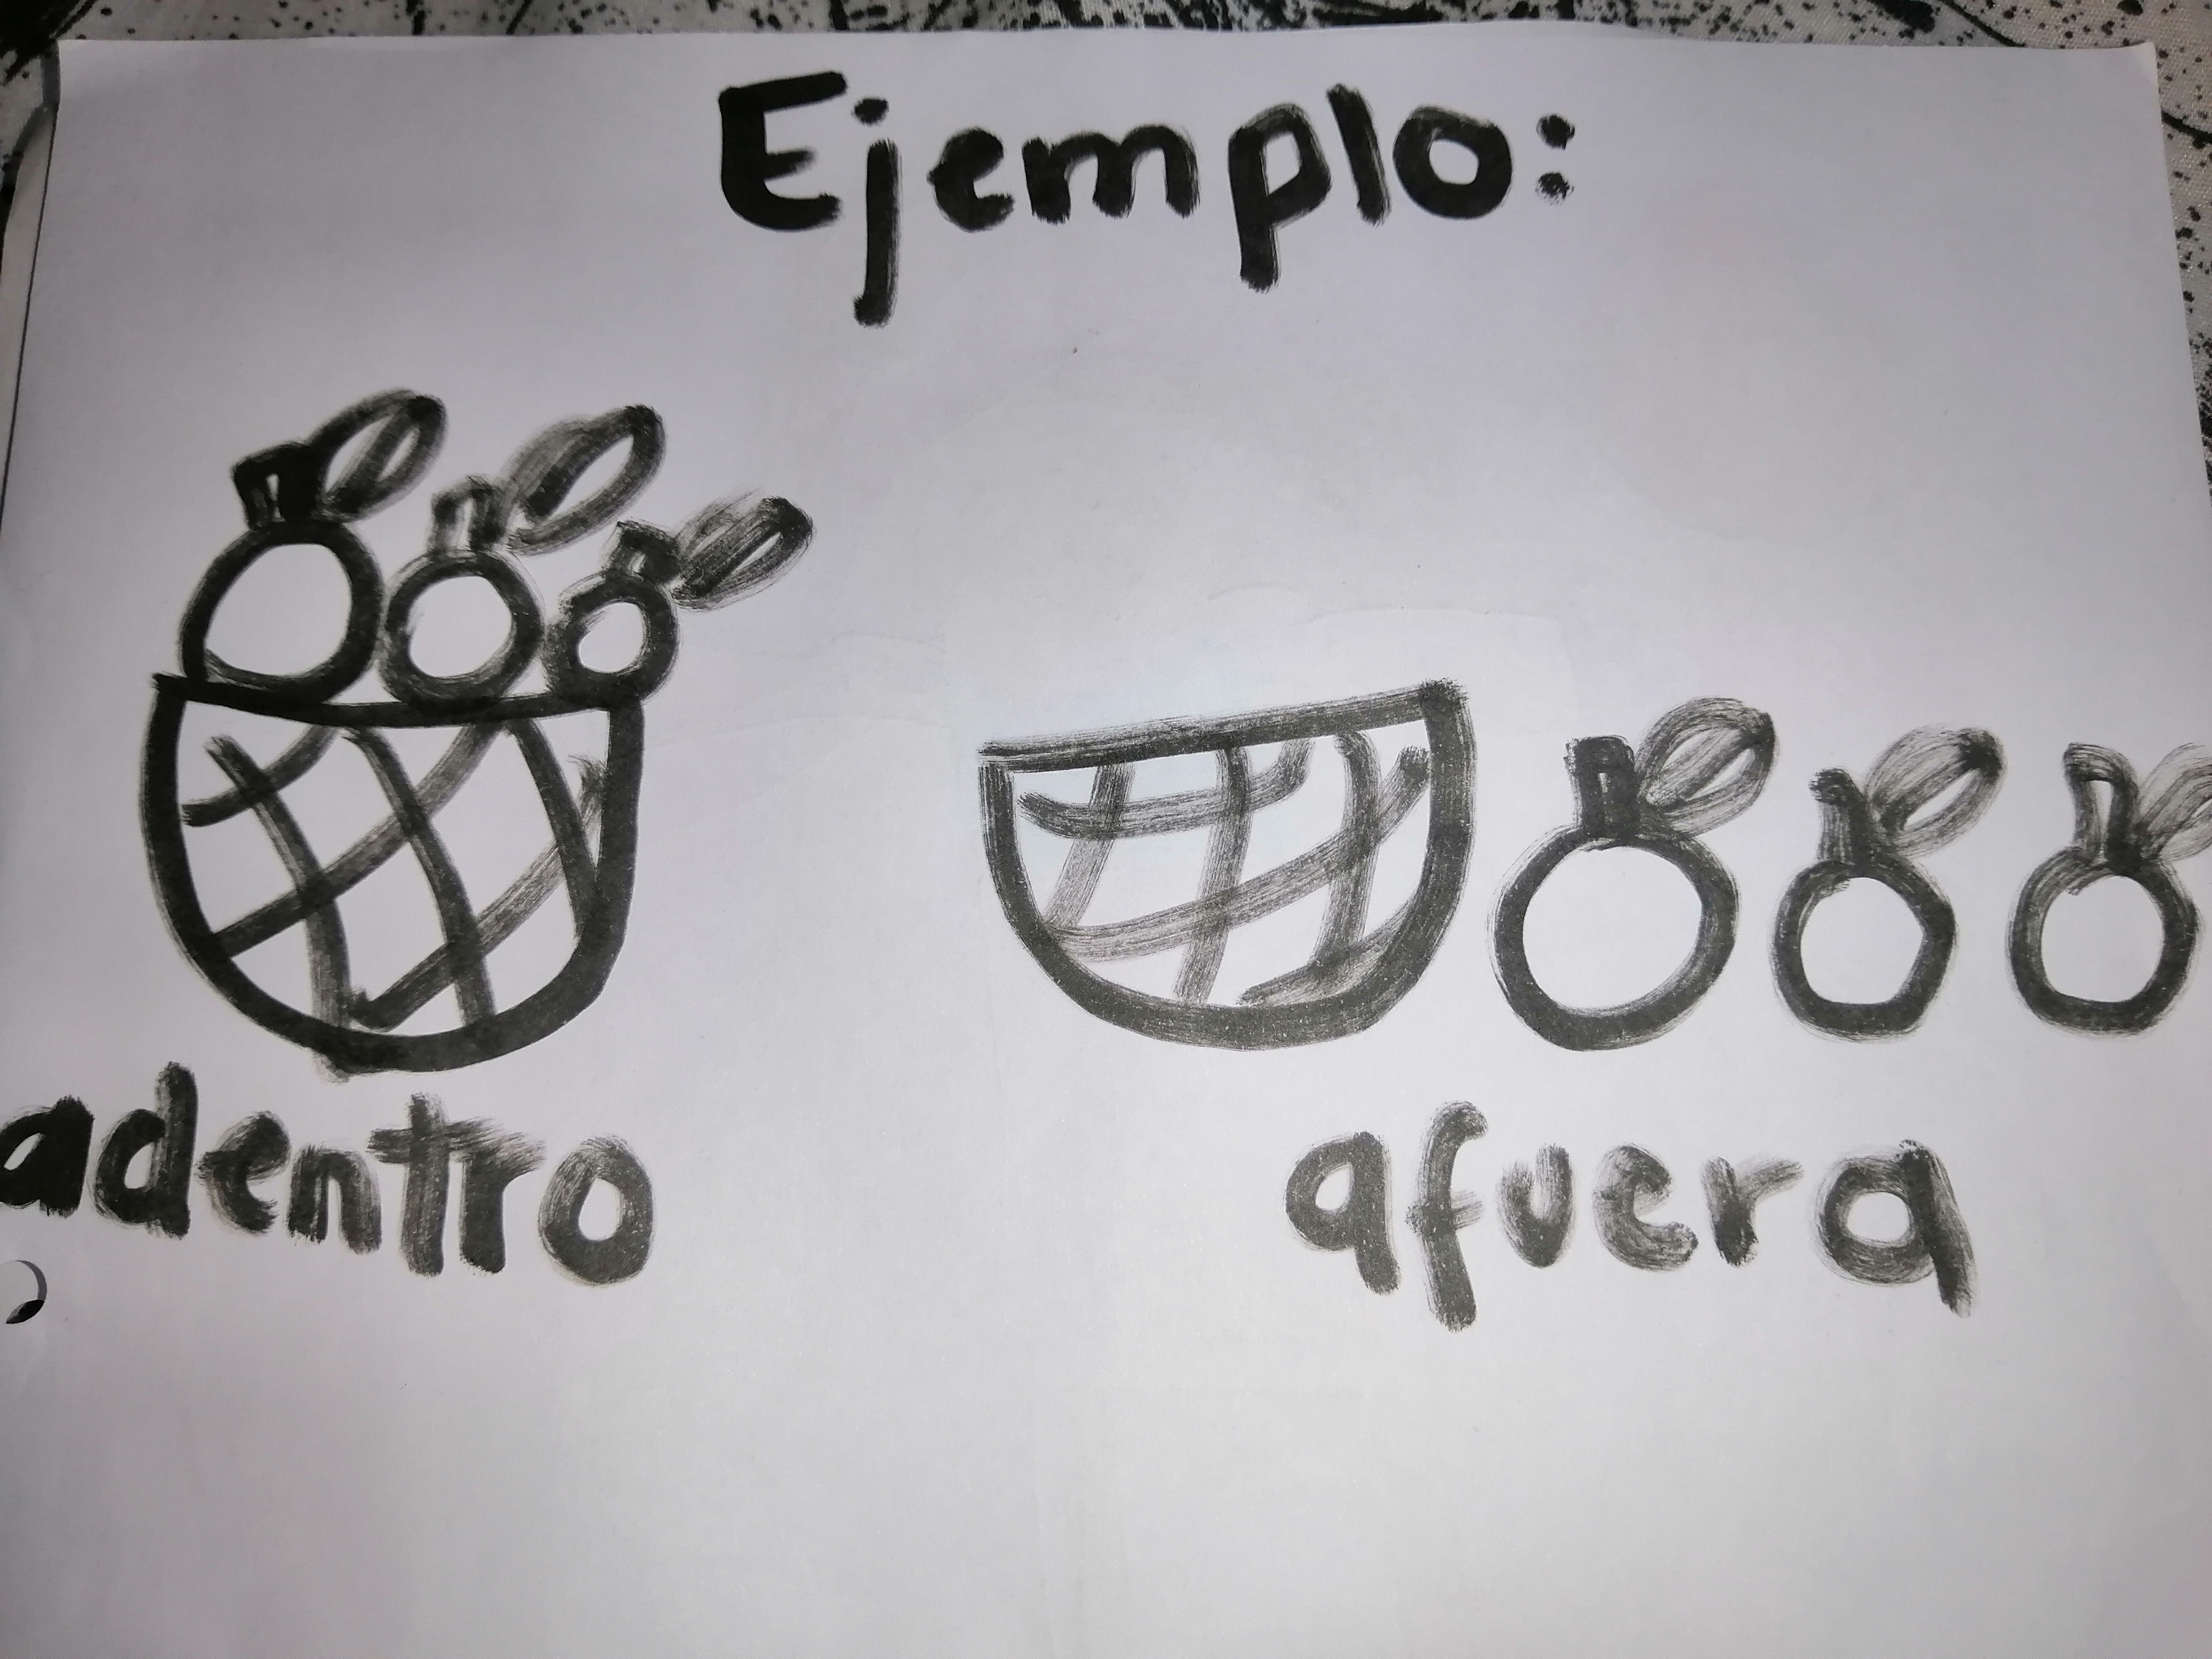 Ejemplo:
adentro
afuera